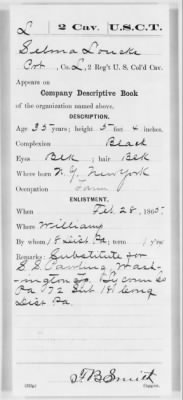 L | 2 Cav. | U.S.C.T.
Selma Loucks
Cpt, Co. L, 2 Reg't U. S. Col'd Cav.
Appears on
Company Descriptive Book
of the organization named above.
DESCRIPTION.
Age 35 years; height 5 feet 4 inches.
Complexion Black
Eyes Blk; hair Blk
Where born N.Y. New York
Occupation Farm
ENLISTMENT.
When Feb 28, 1865.
Where Williamsp
By whom 18 Dist Pa; term 1 y'rs
Remarks: Substitute for
Wash-
ington Lycoming Co
Pa 72 Sub 18 Cong
Dist Pa.
F B Smith
Copyist.